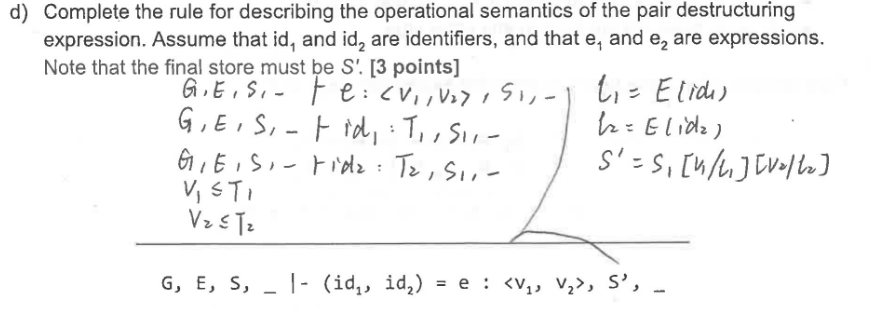 d) Complete the rule for describing the operational semantics of the pair destructuring
expression. Assume that id₁ and id₂ are identifiers, and that e₁ and e₂ are expressions.
Note that the final store must be S'. [3 points]
G, E, S, - ⊢ e : <V₁, V₂>, S₁, -
G, E, S, - ⊢ id₁ : T₁, S₁, -
G, E, S, - ⊢ id₂ : T₂, S₁, -
V₁ ≤ T₁
V₂ ≤ T₂
l₁ = E(id₁)
l₂ = E(id₂)
S' = S₁ [V₁/l₁] [V₂/l₂]
G, E, S, _ |- (id₁, id₂) = e : <v₁, v₂>, S', _